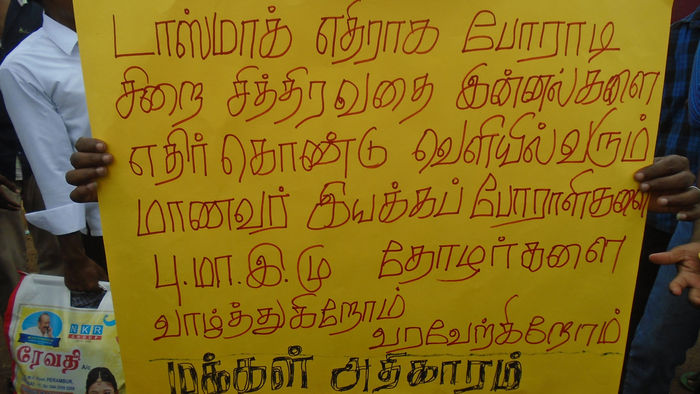 டாஸ்மாக் எதிராக போராடி
சிறை சித்திரவதை இன்னல்களை
எதிர் கொண்டு வெளியில் வரும்
மாணவர் இயக்கப் போராளிகளை
பு.மா.இ.மு தோழர்களை
வாழ்த்துகிறோம்
வரவேற்கிறோம்
மக்கள் அதிகாரம்
NKR
ரேவதி A/c